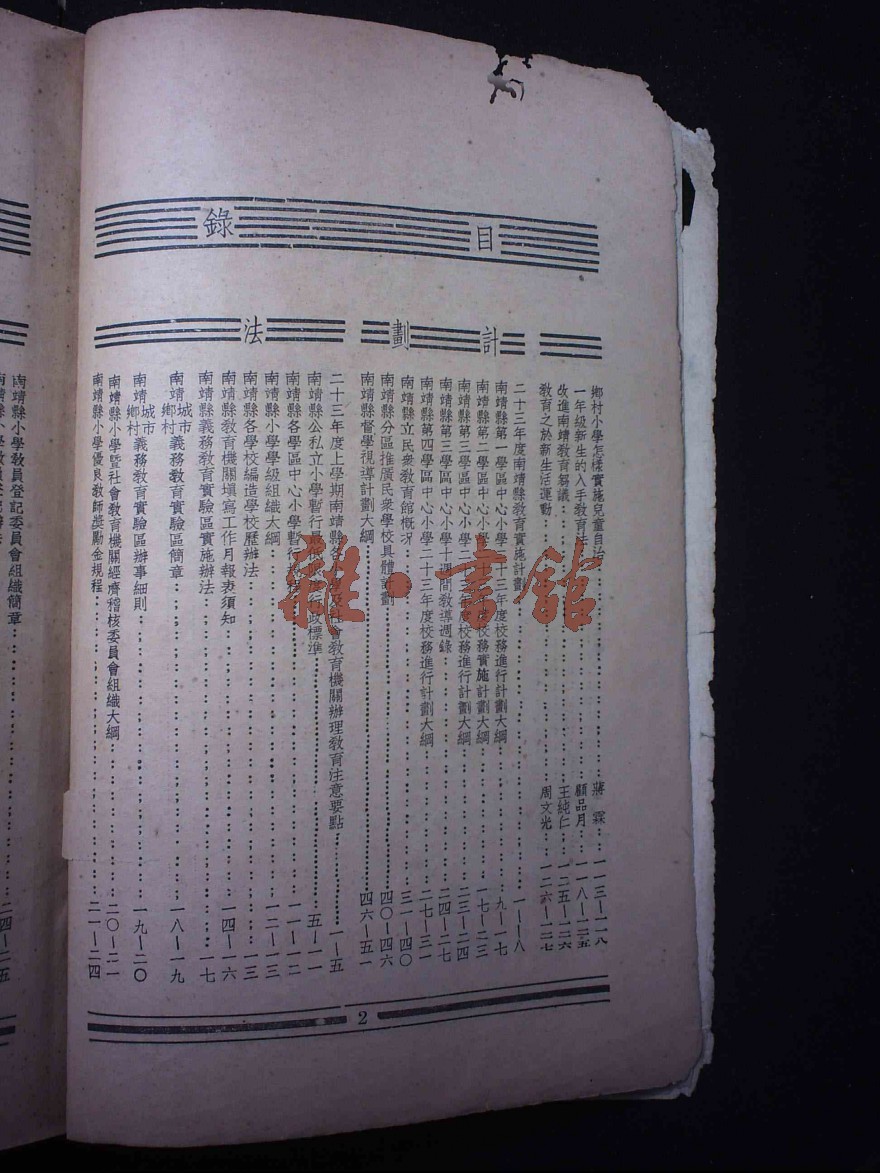 目錄
鄉村小學怎樣實施兒童自治 蔣霖 一一三—一一八
一年級新生的入手教育法 顧品月 一一八—一二五
改進南靖教育芻議 王純仁 一二五—一二六
教育之於新生活運動 周文光 一二六—一二七
計劃
二十三年度南靖縣教育實施計劃 一—八
南靖縣第一學區中心小學二十三年度校務進行計劃大綱 九—一七
南靖縣第二學區中心小學二十三年度校務實施計劃大綱 一七—二三
南靖縣第三學區中心小學二十三年度校務進行計劃大綱 二三—二四
南靖縣第二學區中心小學十週間教導週錄 二四—二七
南靖縣第四學區中心小學二十三年度校務進行計劃大綱 二七—三一
南靖縣立民衆教育館概況 三一—四〇
南靖縣分區推廣民衆學校具體計劃 四〇—四六
南靖縣督學視導計劃大綱 四六—五一
法
二十三年度上學期南靖縣各 及社會教育機關辦理教育注意要點 一—五
南靖縣公私立小學暫行最低限度行政標準 五—一一
南靖縣各學區中心小學暫行規程 一一—一二
南靖縣小學學級組織大綱 一二—一三
南靖縣各學校編造學校歷辦法 一三
南靖縣教育機關填寫工作月報表須知 一四—一六
南靖縣義務教育實驗區實施辦法 一七
南靖城市鄉村義務教育實驗區簡章 一八—一九
南靖城市鄉村義務教育實驗區辦事細則 一九—二〇
南靖縣小學暨社會教育機關經濟稽核委員會組織大綱 二〇—二一
南靖縣小學優良教師獎勵金規程 二一—二四
南靖縣小學教員登記委員會組織簡章 二四—二五
南靖縣小學教員
2
雜·書館